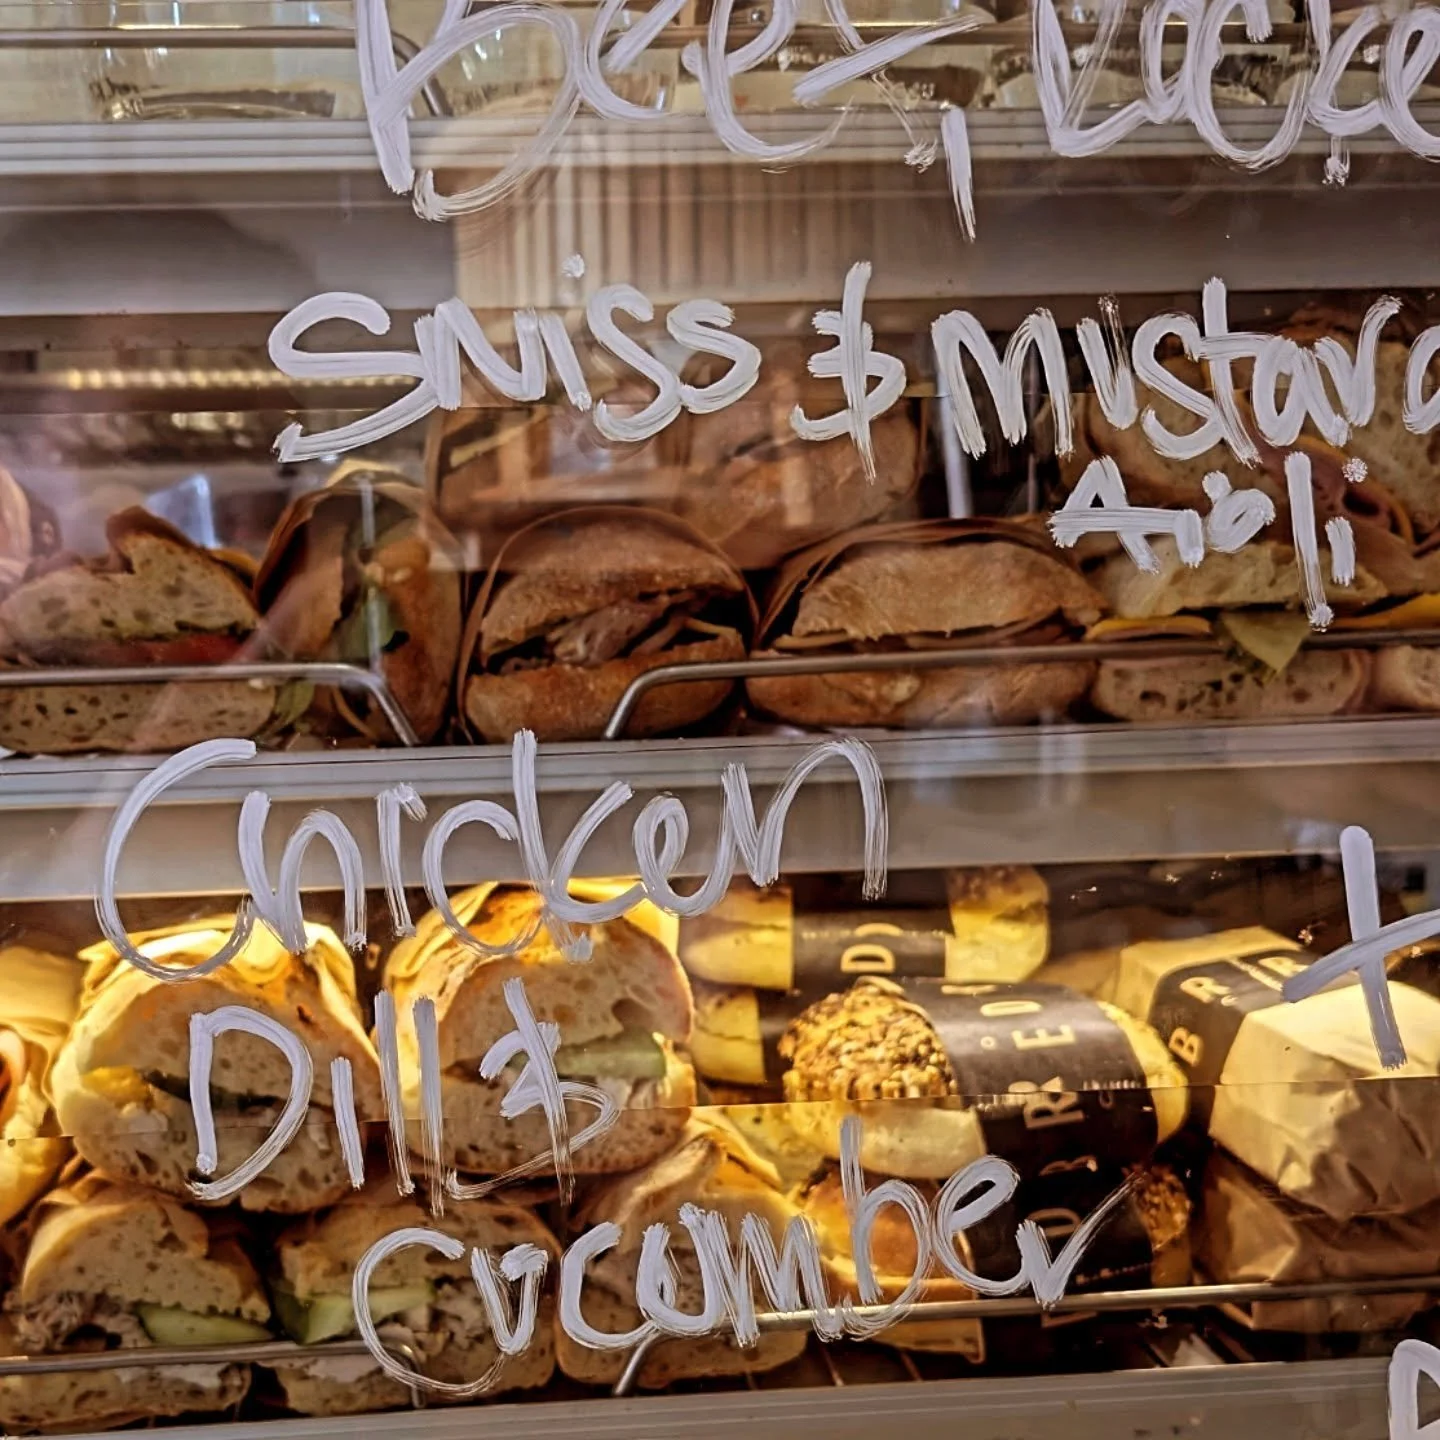 Beef, Rocke
Swiss & Mustard
Aioli
Chicken
Dill &
Cucumber